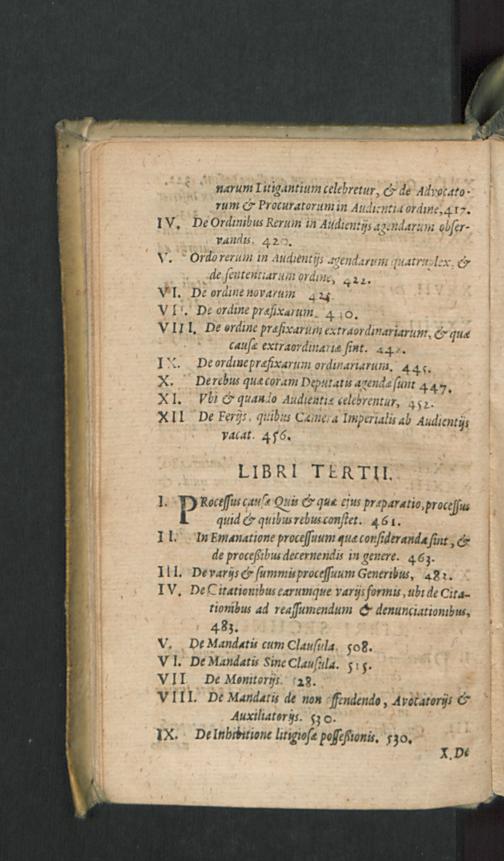 narum Litigantium celebretur, & de Advocato-
rum & Procuratorum in Audientia ordine, 417.
IV. De Ordinibus Rerum in Audientijs agendarum obser-
vandis. 420.
V. Ordo rerum in Audientijs agendarum quatruplex, &
de sententiarum ordine, 422.
VI. De ordine novarum 425
VII. De ordine præfixarum. 430.
VIII. De ordine præfixarum extraordinariarum, & quæ
causæ extraordinariæ sint.
IX. De ordine præfixarum ordinariarum. 445.
X. De rebus quæ coram Deputatis agendæ sunt 447.
XI. Vbi & quando Audientiæ celebrentur, 452.
XII De Ferijs, quibus Camera Imperialis ab Audientijs
vacat. 456.
LIBRI TERTII.
I. PRocessus causæ Quis & quæ ejus præparatio, processus
quid & quibus rebus constet. 461.
II. In Emanatione processuum quæ consideranda sint, &
de processibus decernendis in genere. 463.
III. De varijs & summis processuum Generibus, 482.
IV. De Citationibus earumque varijs formis, ubi de Cita-
tionibus ad reassumendum & denunciationibus,
483.
V. De Mandatis cum Clausula. 508.
VI. De Mandatis Sine Clausula. 515.
VII De Monitorijs. 28.
VIII. De Mandatis de non ffendendo, Avocatorijs &
Auxiliatorijs. 530.
IX. De Inhibitione litigiosæ possessionis. 530.
X. De